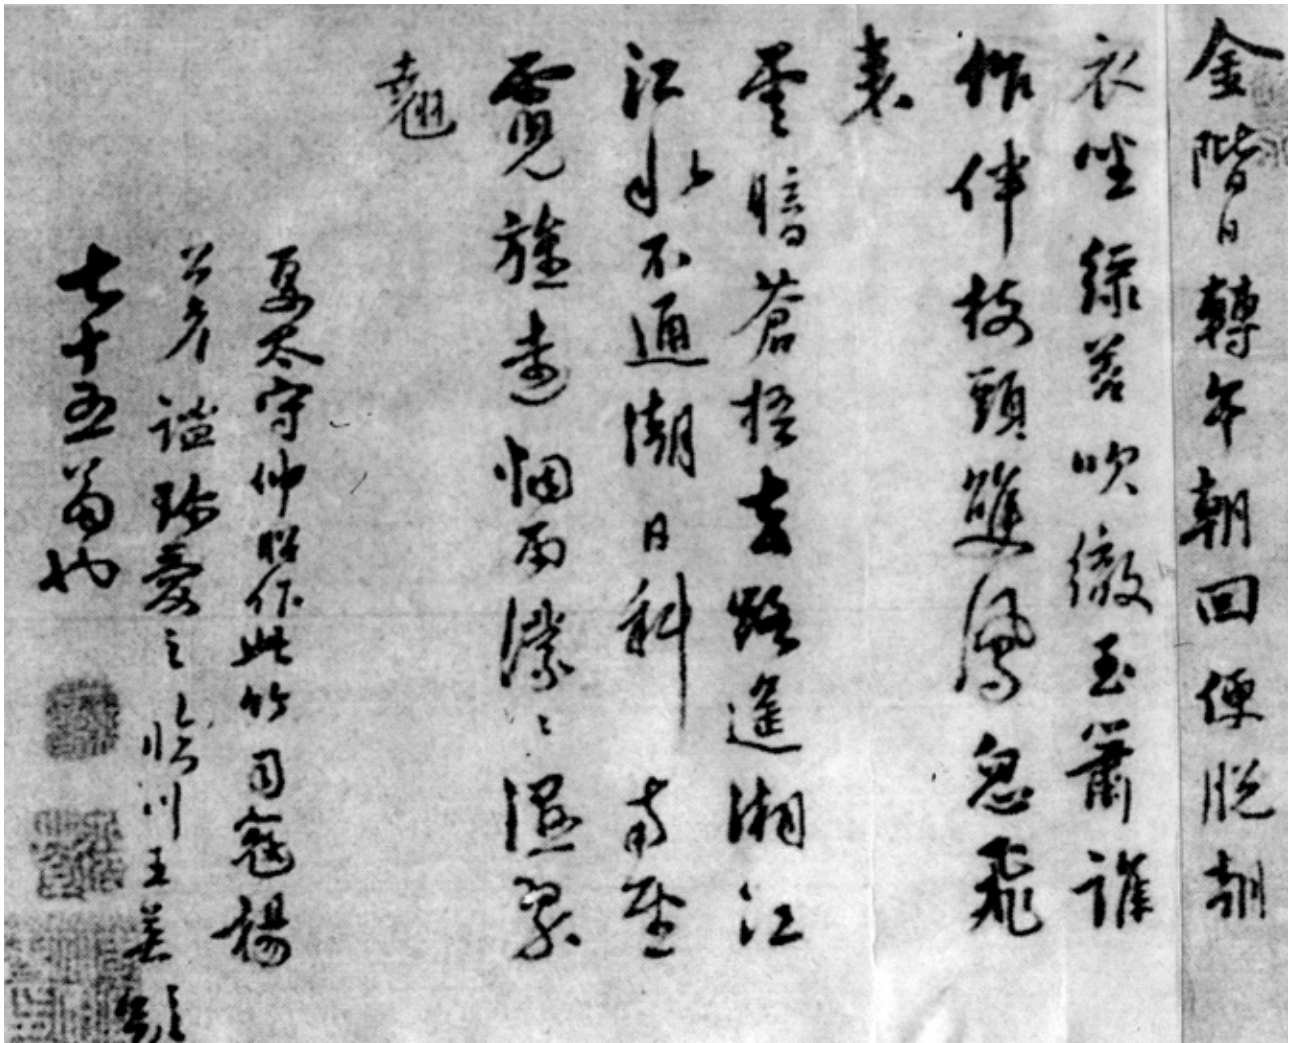 金階日轉午朝回便脫朝
衣坐綠苔吹徹玉簫誰
作伴枝頭雙鳳忽飛
來
雲暗蒼梧去路遙湘江
江水不通潮日斜南望
霓旌遠烟雨濛〻濕翠
翹
夏太守仲昭作此竹司寇楊
公彥謐珍愛之臨川王英題
七十五翁也